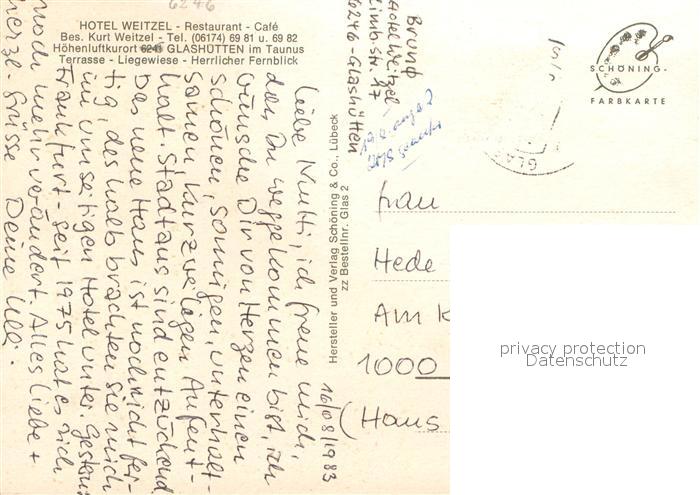 6246
HOTEL WEITZEL - Restaurant - Café
Bes. Kurt Weitzel - Tel. (06174) 69 81 u. 69 82
Höhenluftkurort 6241 GLASHÜTTEN im Taunus
Terrasse - Liegewiese - Herrlicher Fernblick
Liebe Mutti, ich freue mich,
das Du weggekommen bist, ich
wünsche Dir von Herzen einen
schönen, sonnigen, unterhalt-
samen, kurzweiligen Aufent-
halt. Stadtaus sind entzückend
Das neue Haus ist noch nicht fer-
tig, deshalb brachten sie mich
im umseitigen Hotel unter. Gestern
Frankfurt - seit 1975 hat es sich
noch mehr verändert. Alles Liebe +
herzl. Grüsse Deine Ulli.
16/08/1983
Hersteller und Verlag Schöning & Co., Lübeck
zz Bestellnr. Glas 2
Bruno
Hotel Weitzel,
Limb. Str. 17
6246 - Glashütten
SCHÖNING-
FARBKARTE
GLAS
Frau
Hede
Am K
1000
(Haus
privacy protection
Datenschutz